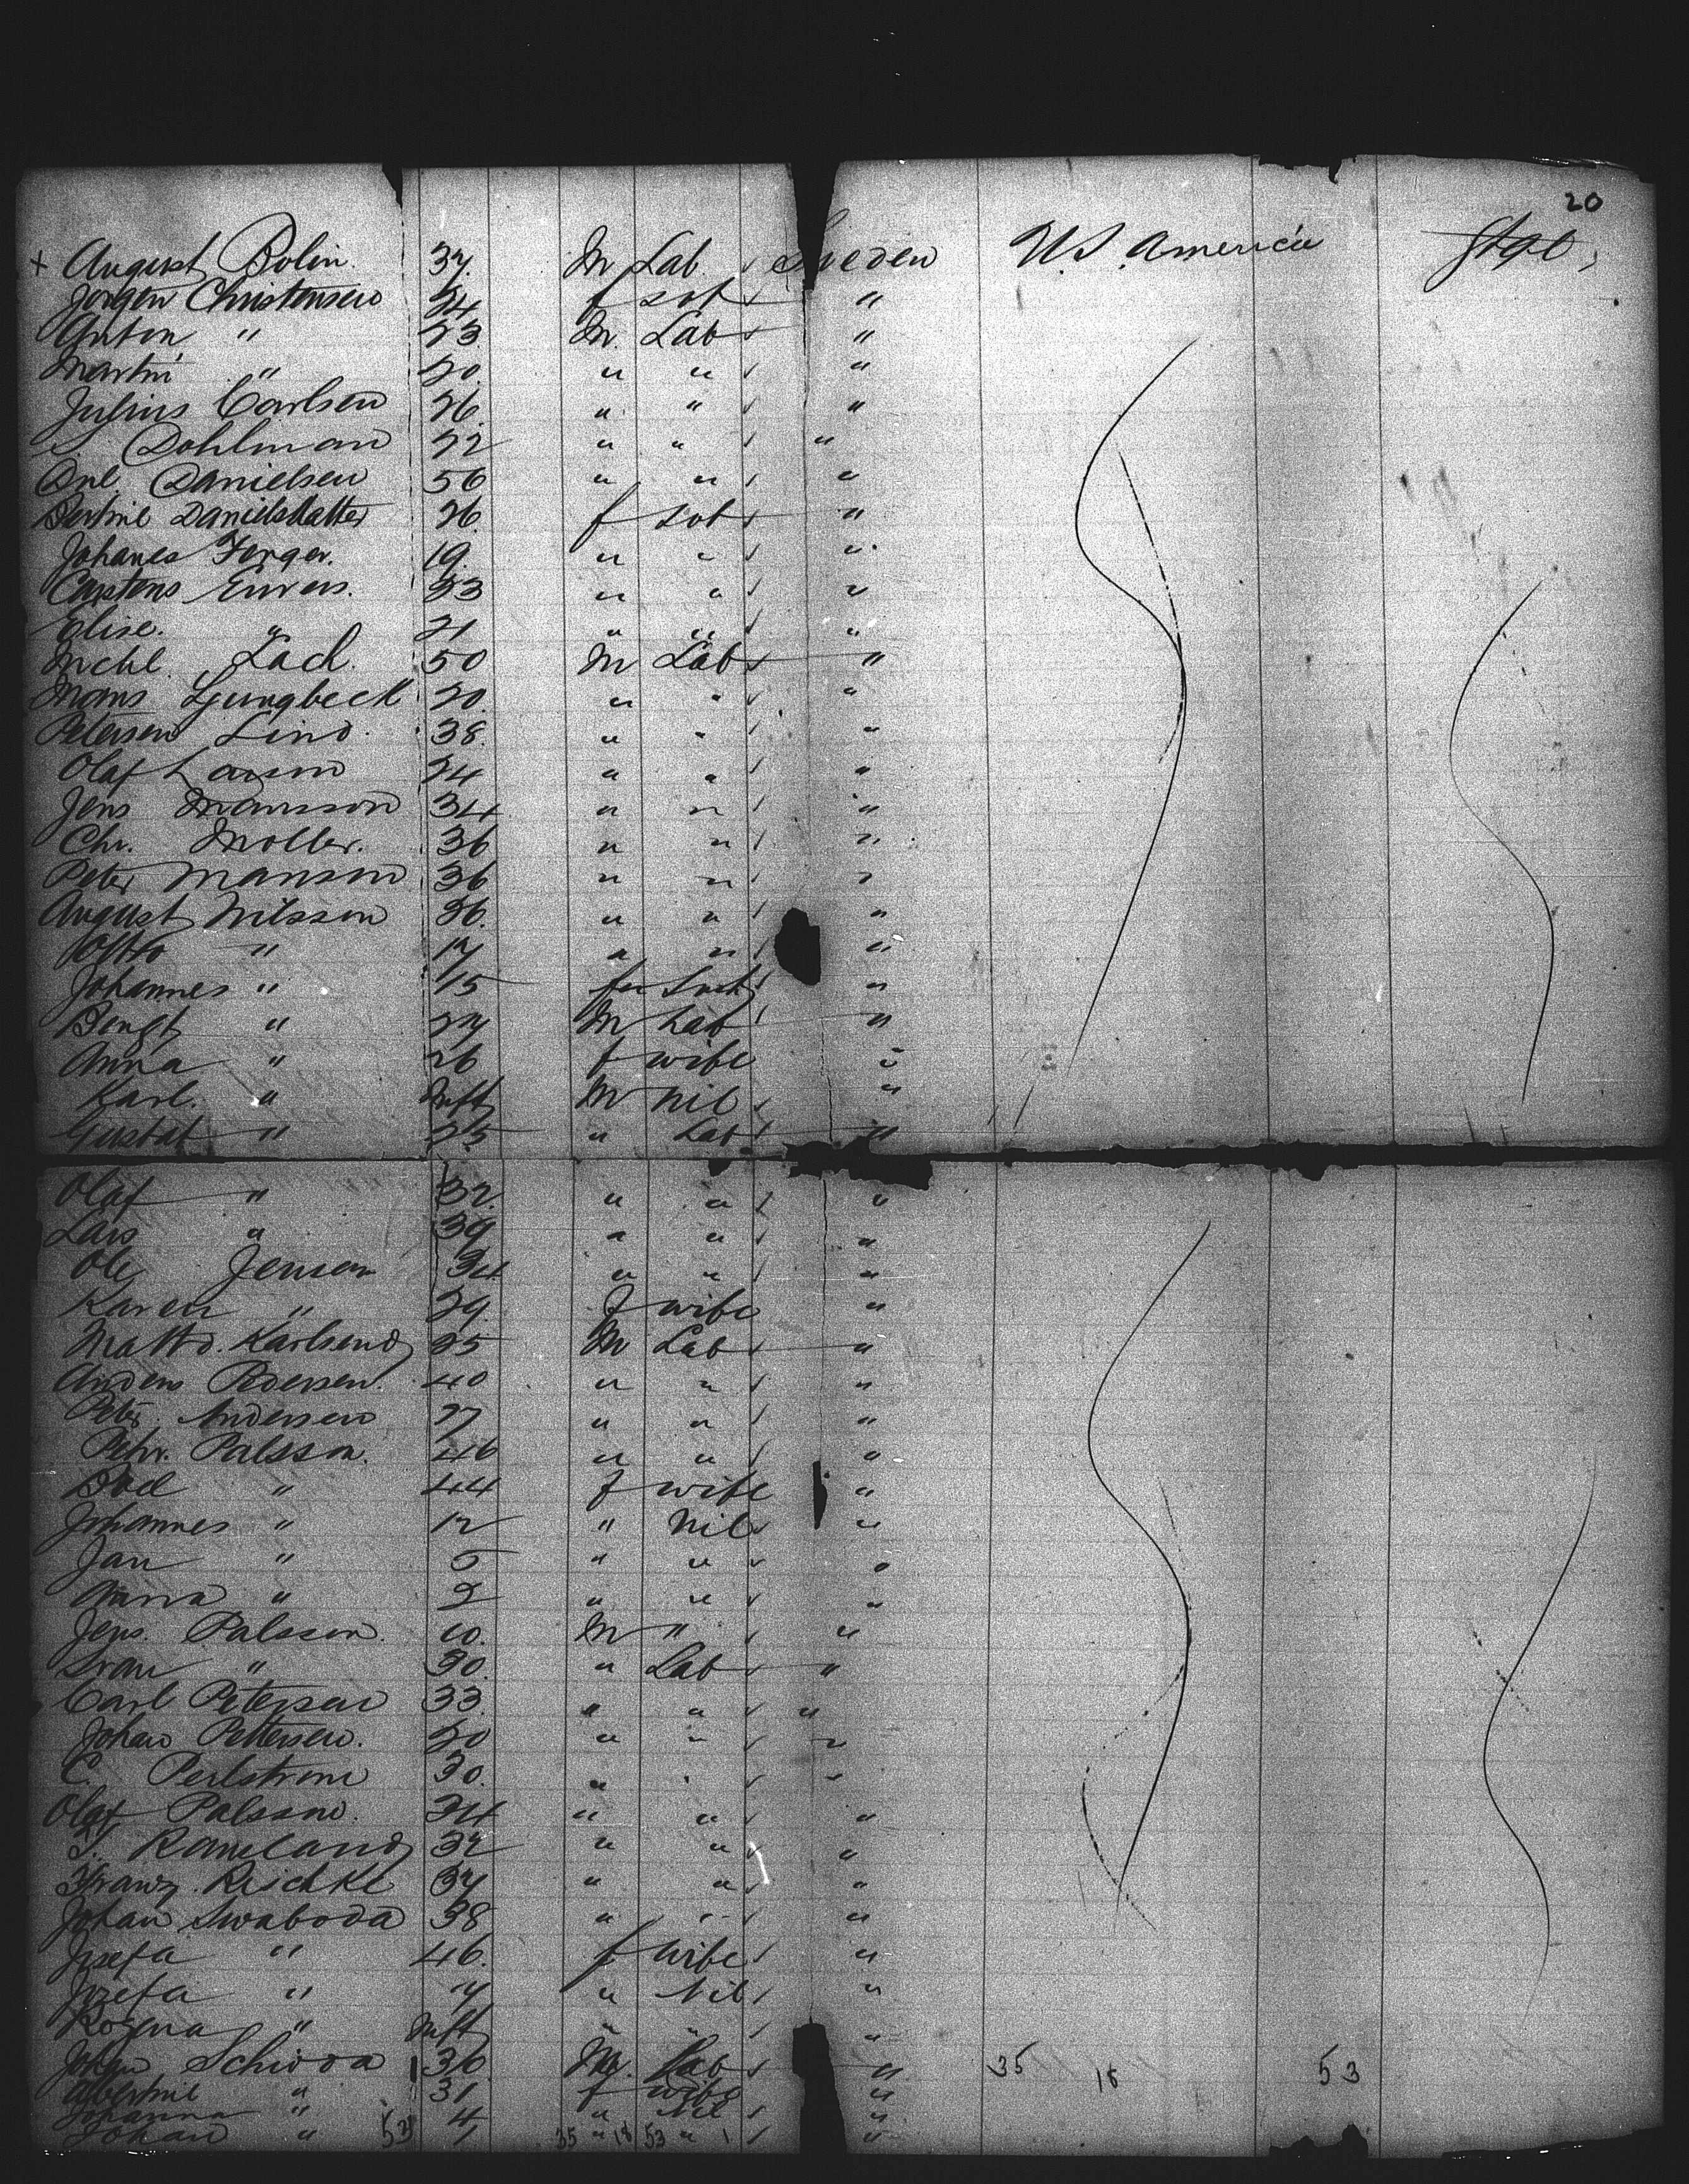 20
+ August Bolin. 37. M Lab ✓ Sweden U.S. America Stge,
Jorgen Christensen 24 f ✓ "
Anton " 23 M. Lab ✓ "
Martin " 20. " " ✓ "
Julius Carlsen 26. " " ✓ "
Dohlman 22 " " ✓ "
Danielsen 56 " " ✓ "
Danielsdatter 26. f ✓ "
Johanes 19. " " ✓ "
Carstens 23 " " ✓ "
Elise. " 21 " " ✓ "
Mchl. Lach. 50 M Lab ✓ "
Mans Ljungbeck 20. " " ✓ "
Petersen Lind. 38. " " ✓ "
Olaf Larson 24 " " ✓ "
Jens Mansson 34 " " ✓ "
Chr. Moller. 36 " " ✓ "
Peter Manson 36 " " ✓ "
August Nilsson 26. " " ✓ "
Otto " 17 " " ✓ "
Johannes " 15 ✓ "
Bengt " 27 M Lab ✓ "
Anna " 26 f wife "
Karl. " Inft M Nil ✓ "
Gustaf " 25 " Lab ✓ "
Olaf " 32. " " ✓ "
Lars " 39 " " ✓ "
Ole Jensen 34 " " ✓ "
Karen " 29. f wife "
Karlsen 25 M Lab ✓ "
Anders Pedersen. 40 " " ✓ "
Peter Andersen 27 " " ✓ "
Pehr. Palsson. 46 " " ✓ "
Boel " 44 f wife "
Johannes " 12 " Nil ✓ "
Jan " 5 " " ✓ "
Anna " 2 " " ✓ "
Jens. Palsson. 10. M " ✓ "
" 30. " Lab ✓ "
Carl Petersen 33. " " ✓ "
Johan Pettersen. 20 " " ✓ "
C. Perlstrom 30. " " ✓ "
Olaf Palsson. 24 " " ✓ "
32 " " ✓ "
Franz Reschke 37 " " ✓ "
Johan Swaboda 38 " " ✓ "
Josefa " 46. f wife ✓ "
Josefa " 7 " Nil ✓ "
Rozena " Inft " " ✓ "
Johan 36 M. Lab ✓ " 35 18 53
Albertine " 31 f wife "
Johanna " 4 " Nil ✓ "
Johan " 53 1 35 " 18 53 " 1 ✓ "